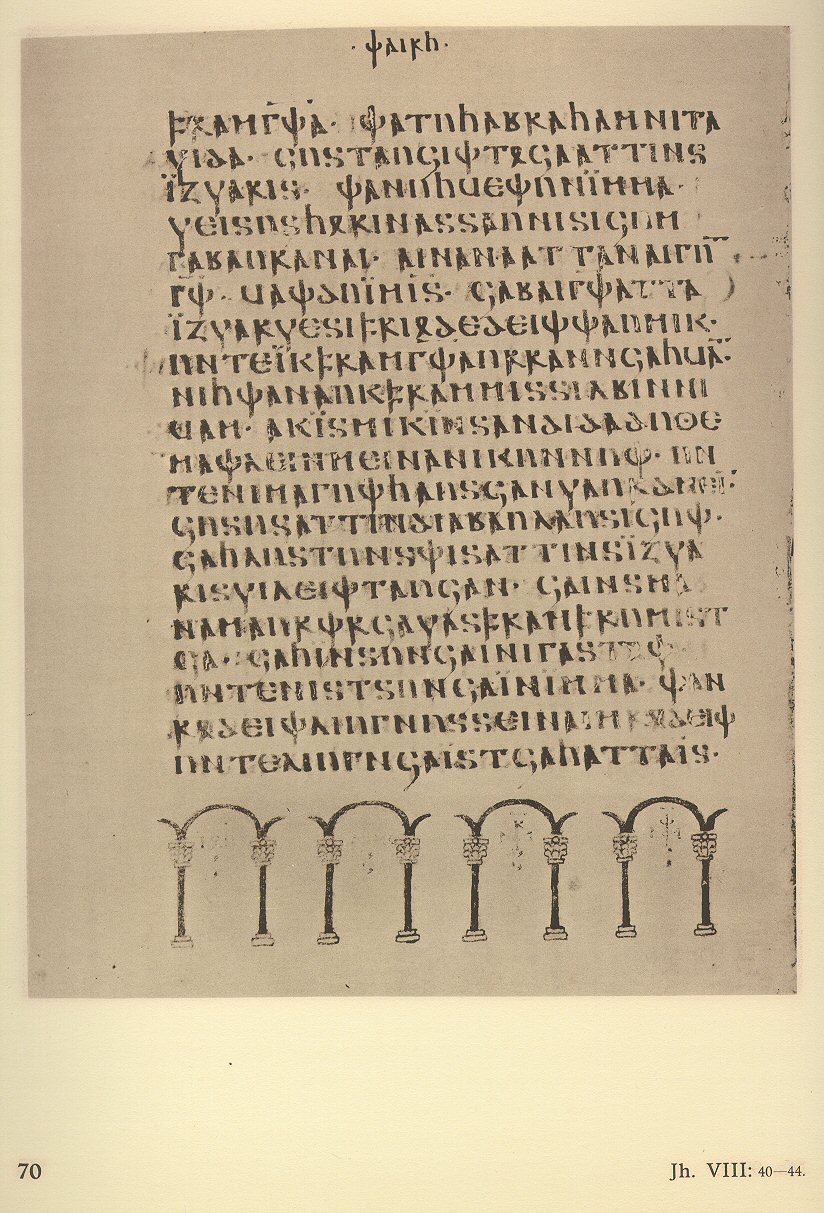 · 𐌸𐌰𐌹𐍂𐌷 ·
𐍆𐍂𐌰𐌼 𐌲̅𐌸̅𐌰̅ · 𐌸𐌰𐍄𐌿𐌷 𐌰𐌱𐍂𐌰𐌷𐌰𐌼 𐌽𐌹 𐍄𐌰
𐍅𐌹𐌳𐌰 · 𐌾𐌿𐍃 𐍄𐌰𐌿𐌾𐌹𐌸 𐍄𐍉𐌾𐌰 𐌰𐍄𐍄𐌹𐌽𐍃
𐌹̈𐌶𐍅𐌰𐍂𐌹𐍃 · 𐌸𐌰𐌽𐌿𐌷 𐌵𐌴𐌸𐌿𐌽 𐌹̈𐌼𐌼𐌰 ·
𐍅𐌴𐌹𐍃 𐌿𐍃 𐌷𐍉𐍂𐌹𐌽𐌰𐍃𐍃𐌰𐌿 𐌽𐌹 𐍃𐌹𐌾𐌿𐌼
𐌲𐌰𐌱𐌰𐌿𐍂𐌰𐌽𐌰𐌹 · 𐌰𐌹𐌽𐌰𐌽𐌰 𐌰𐍄𐍄𐌰𐌽 𐌰𐌹𐌲𐌿̅
𐌲̅𐌸̅ · 𐌵𐌰𐌸 𐌳𐌿 𐌹̈𐌼 𐌹̅𐍃̅ · 𐌾𐌰𐌱𐌰𐌹 𐌲̅𐌸̅ 𐌰𐍄𐍄𐌰
𐌹̈𐌶𐍅𐌰𐍂 𐍅𐌴𐍃𐌹 𐍆𐍂𐌹𐍉𐌳𐌴𐌳𐌴𐌹𐌸 𐌸𐌰𐌿 𐌼𐌹𐌺 ·
𐌿𐌽𐍄𐌴 𐌹̈𐌺 𐍆𐍂𐌰𐌼 𐌲̅𐌸̅𐌰̅ 𐌿𐍂𐍂𐌰𐌽𐌽 𐌾𐌰𐌷 𐌵𐌰̅ ·
𐌽𐌹𐌷 𐌸𐌰𐌽 𐌰𐌿𐌺 𐍆𐍂𐌰𐌼 𐌼𐌹𐍃 𐍃𐌹𐌻𐌱𐌹𐌽 𐌽𐌹
𐌵𐌰𐌼 · 𐌰𐌺 𐌹̈𐍃 𐌼𐌹𐌺 𐌹̈𐌽𐍃𐌰𐌽𐌳𐌹𐌳𐌰 𐌳𐌿𐍈𐌴
𐌼𐌰𐌸𐌻𐌴𐌹𐌽 𐌼𐌴𐌹𐌽𐌰 𐌽𐌹 𐌺𐌿𐌽𐌽𐌿𐌸 · 𐌿𐌽
𐍄𐌴 𐌽𐌹 𐌼𐌰𐌲𐌿𐌸 𐌷𐌰𐌿𐍃𐌾𐌰𐌽 𐍅𐌰𐌿𐍂𐌳 𐌼𐌴𐌹̅ ·
𐌾𐌿𐍃 𐌿𐍃 𐌰𐍄𐍄𐌹𐌽 𐌳𐌹𐌰𐌱𐌰𐌿𐌻𐌰𐌿 𐍃𐌹𐌾𐌿𐌸 ·
𐌾𐌰𐌷 𐌻𐌿𐍃𐍄𐌿𐌽𐍃 𐌸𐌹𐍃 𐌰𐍄𐍄𐌹𐌽𐍃 𐌹̈𐌶𐍅𐌰
𐍂𐌹𐍃 𐍅𐌹𐌻𐌴𐌹𐌸 𐍄𐌰𐌿𐌾𐌰𐌽 · 𐌾𐌰𐌹𐌽𐍃 𐌼𐌰
𐌽𐌰𐌼𐌰𐌿𐍂𐌸𐍂𐌾𐌰 𐍅𐌰𐍃 𐍆𐍂𐌰𐌼 𐍆𐍂𐌿𐌼𐌹𐍃𐍄
𐌾𐌰 · 𐌾𐌰𐌷 𐌹𐌽 𐍃𐌿𐌽𐌾𐌰𐌹 𐌽𐌹 𐌲𐌰𐍃𐍄𐍉𐌸 ·
𐌿𐌽𐍄𐌴 𐌽𐌹𐍃𐍄 𐍃𐌿𐌽𐌾𐌰 𐌹̈𐌽 𐌹̈𐌼𐌼𐌰 · 𐌸𐌰𐌽
𐍂𐍉𐌳𐌴𐌹𐌸 𐌻𐌹𐌿𐌲𐌽 𐌿𐍃 𐍃𐌴𐌹𐌽𐌰𐌹𐌼 𐍂𐍉𐌳𐌴𐌹𐌸
𐌿𐌽𐍄𐌴 𐌻𐌹𐌿𐌲𐌽𐌾𐌰 𐌹̈𐍃𐍄 𐌾𐌰𐌷 𐌰𐍄𐍄𐌰 𐌹̈𐍃 ·
70
Jh. VIII: 40—44.